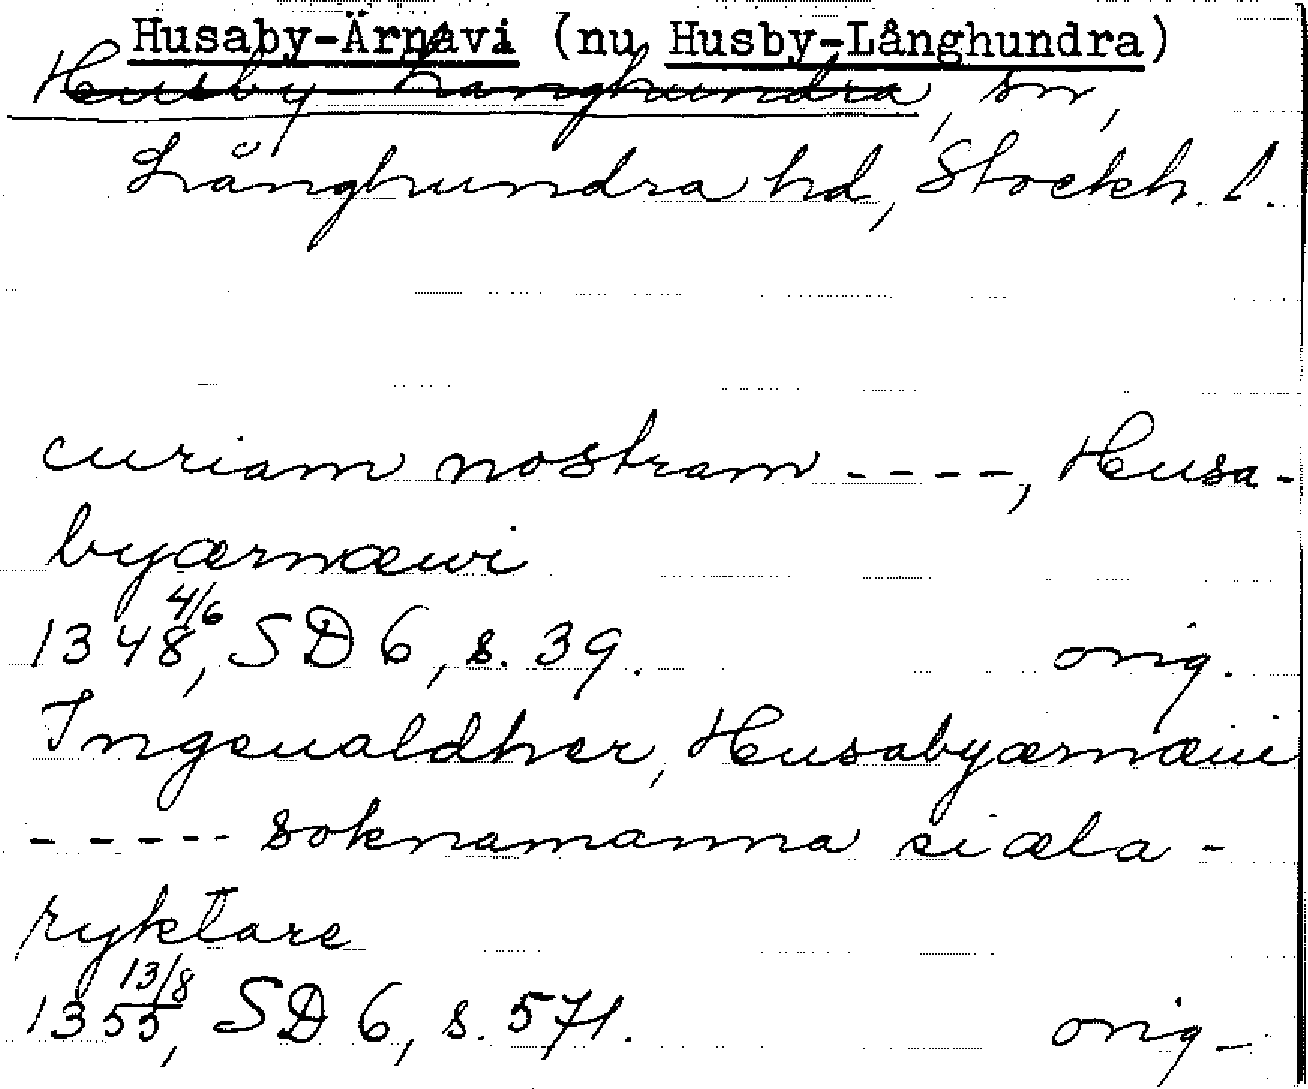 Husaby-Ärnavi (nu Husby-Långhundra)
Husby-Långhundra, sn,
Långhundra hd, Stockh. l.
curiam nostram ----, Husa-
byærnæwi
1348 4/6, SD 6, s. 39. orig.
Ingeualdher, Husabyærnæui
----- soknamanna siæla-
ryktare
1355 13/8, SD 6, s. 571. orig.